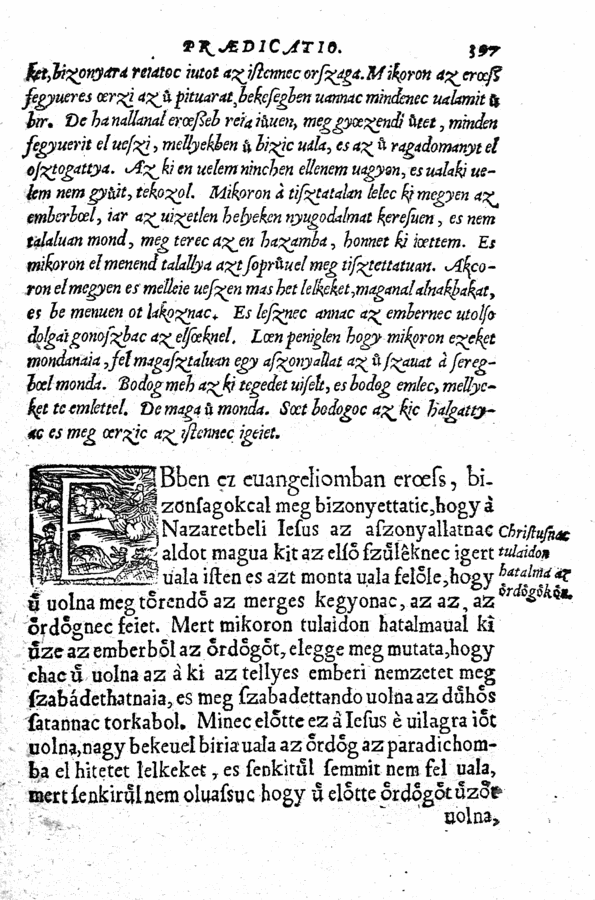 PRÆDICATIO. 397
ket, bizonyara reiatoc iutot az iſtennec orſzaga. Mikoron az erœſſ
fegyueres œrzi az ů pituarat, bekeſegben uannac mindenec ualamit ů
bir. De ha nallanal erœſſeb reia iůuen, meg gyœzendi ůtet, minden
fegyuerit el ueſzi, mellyekben ů bizic uala, es az ů ragadomanyt el
oſztogattya. Az ki en uelem ninchen ellenem uagyon, es ualaki ue-
lem nem gyůit, tekozol. Mikoron à tiſztatalan lelec ki megyen az
emberbœl, iar az uizetlen helyeken nyugodalmat kereſuen, es nem
talaluan mond, meg terec az en hazamba, honnet ki iœttem. Es
mikoron el menend talallya azt ſoprůuel meg tiſztettatuan. Akco-
ron el megyen es melleie ueſzen mas het lelkeket, maganal alnakbakat,
es be menuen ot lakoznac. Es leſznec annac az embernec utolſo
dolgai gonoſzbac az elſœknel. Lœn peniglen hogy mikoron ezeket
mondanaia, fel magaſztaluan egy aſzonyallat az ů ſzauat à ſereg-
bœl monda. Bodog meh az ki tegedet uiſelt, es bodog emlec, mellyc-
ket te emlettel. De maga ů monda. Sœt bodogoc az kic halgatty-
ac es meg œrzic az iſtennec igeiet.
EBben ez euangeliomban erœſs, bi-
zonſagokcal meg bizonyettatic, hogy à
Nazaretbeli Ieſus az aſzonyallatnac
aldot magua kit az elſő ſzůlêknec igert
uala iſten es azt monta uala felőle, hogy
Chriſtuſnac
tulaidon
hatalma az
ördögökön.
ů uolna meg tőrendő az merges kegyonac, az az, az
őrdőgnec feiet. Mert mikoron tulaidon hatalmaual ki
ůze az emberből az őrdőgőt, elegge meg mutata, hogy
chac ů uolna az à ki az tellyes emberi nemzetet meg
ſzabádethatnaia, es meg ſzabadettando uolna az důhős
ſatannac torkabol. Minec előtte ez à Ieſus è uilagra iőt
uolna, nagy bekeuel biria uala az őrdőg az paradichom-
ba el hitetet lelkeket, es ſenkitůl ſemmit nem fel uala,
mert ſenkirůl nem oluaſſuc hogy ů előtte őrdőgőt ůzőt
uolna,